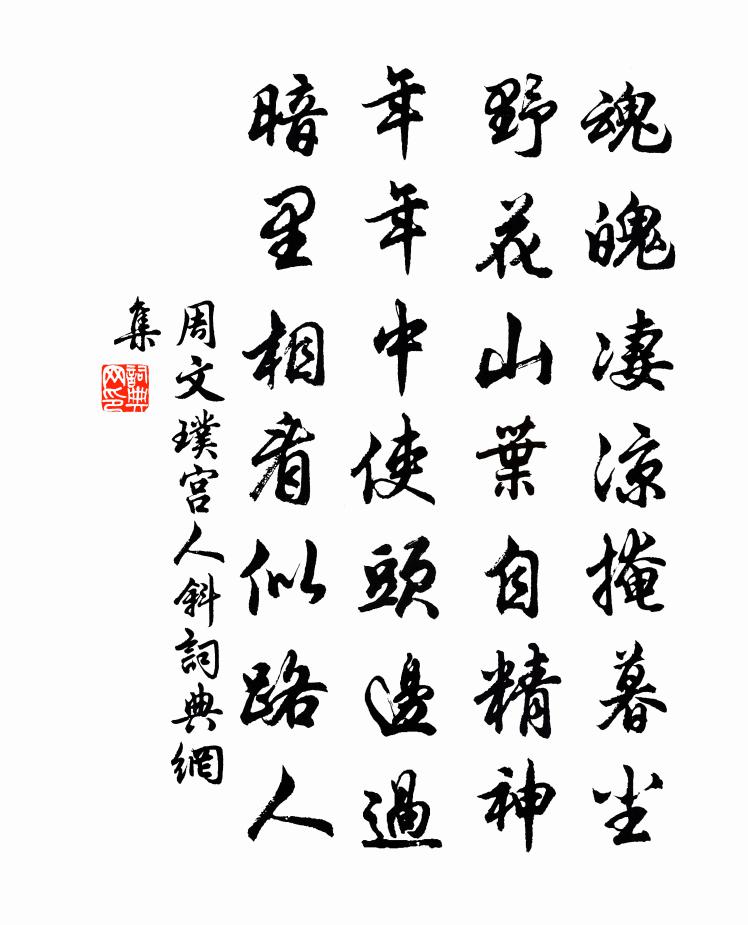 魂魄凄涼掩暮尘
野花山葉自精神
年年中使頭邊過
暗里相看似路人
周文璞宮人斜詞典網
集
詞典
网印